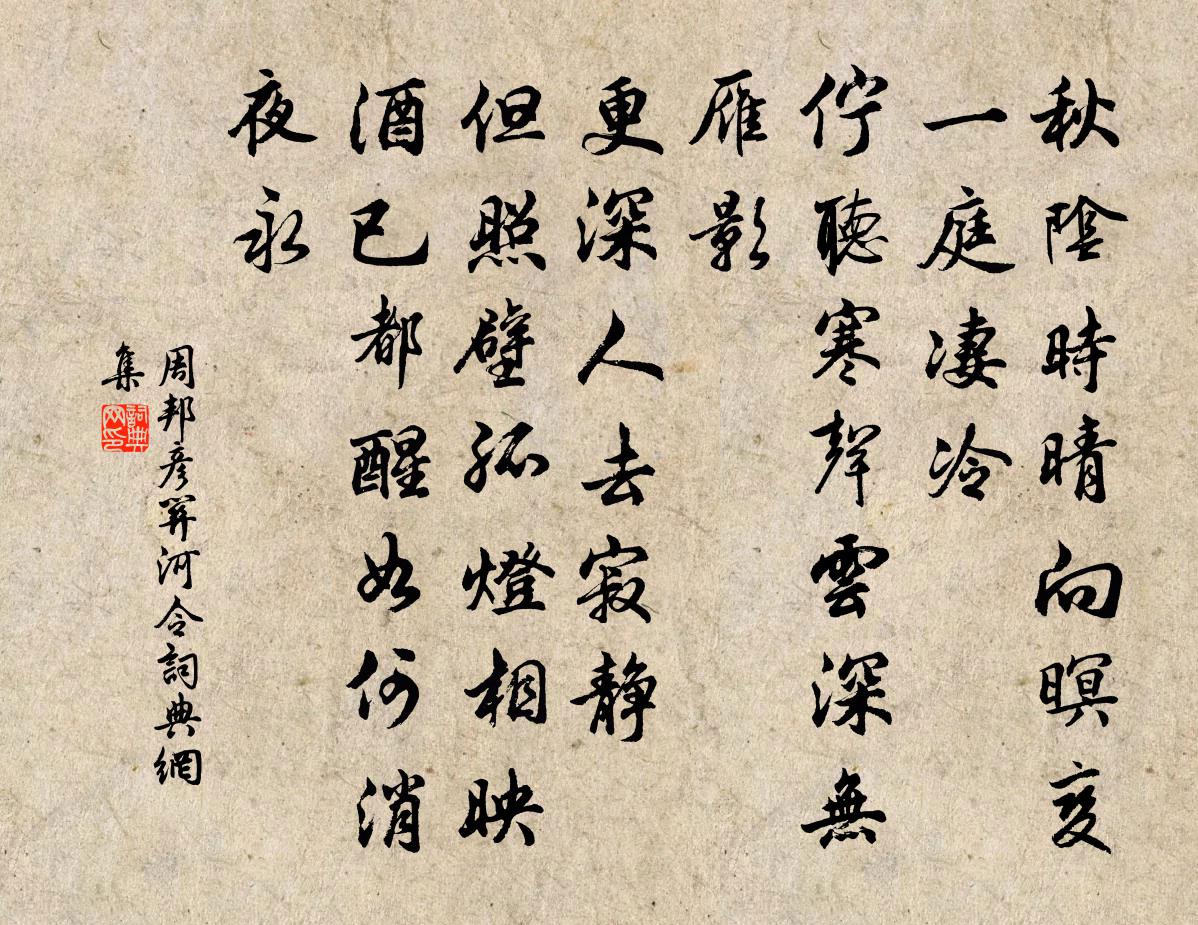 秋陰時晴向暝变
一庭凄冷
佇聽寒聲雲深無
雁影
更深人去寂静
但照壁孤燈相映
酒已都醒如何消
夜永
周邦彦關河令詞典網
集
詞典
网印